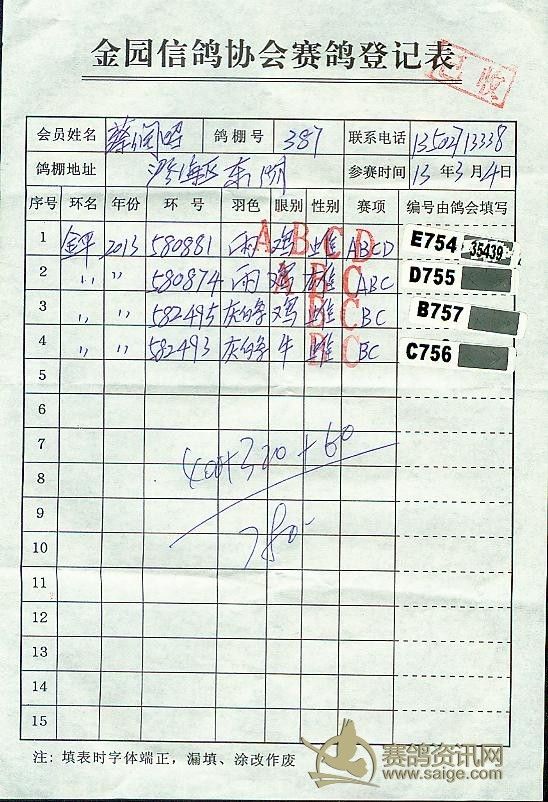 金园信鸽协会赛鸽登记表
已收
会员姓名 蔡 鸽棚号 387 联系电话 13502713338
鸽棚地址 参赛时间 13年3月4日
序号 环名 年份 环号 羽色 眼别 性别 赛项 编号由鸽会填写
1 金平 2013 580881 雨 鸡 雌 ABCD ABCD E754 35439
2 〃 〃 580874 雨 鸡 雄 ABC ABC D755
3 〃 〃 582495 灰白条 鸡 雌 BC BC B757
4 〃 〃 582493 灰白条 牛 雌 BC BC C756
5
6
7
400+320+60
8
9
780-
10
11
12
13
14
15
注：填表时字体端正，漏填、涂改作废
赛鸽资讯网
www.saige.com